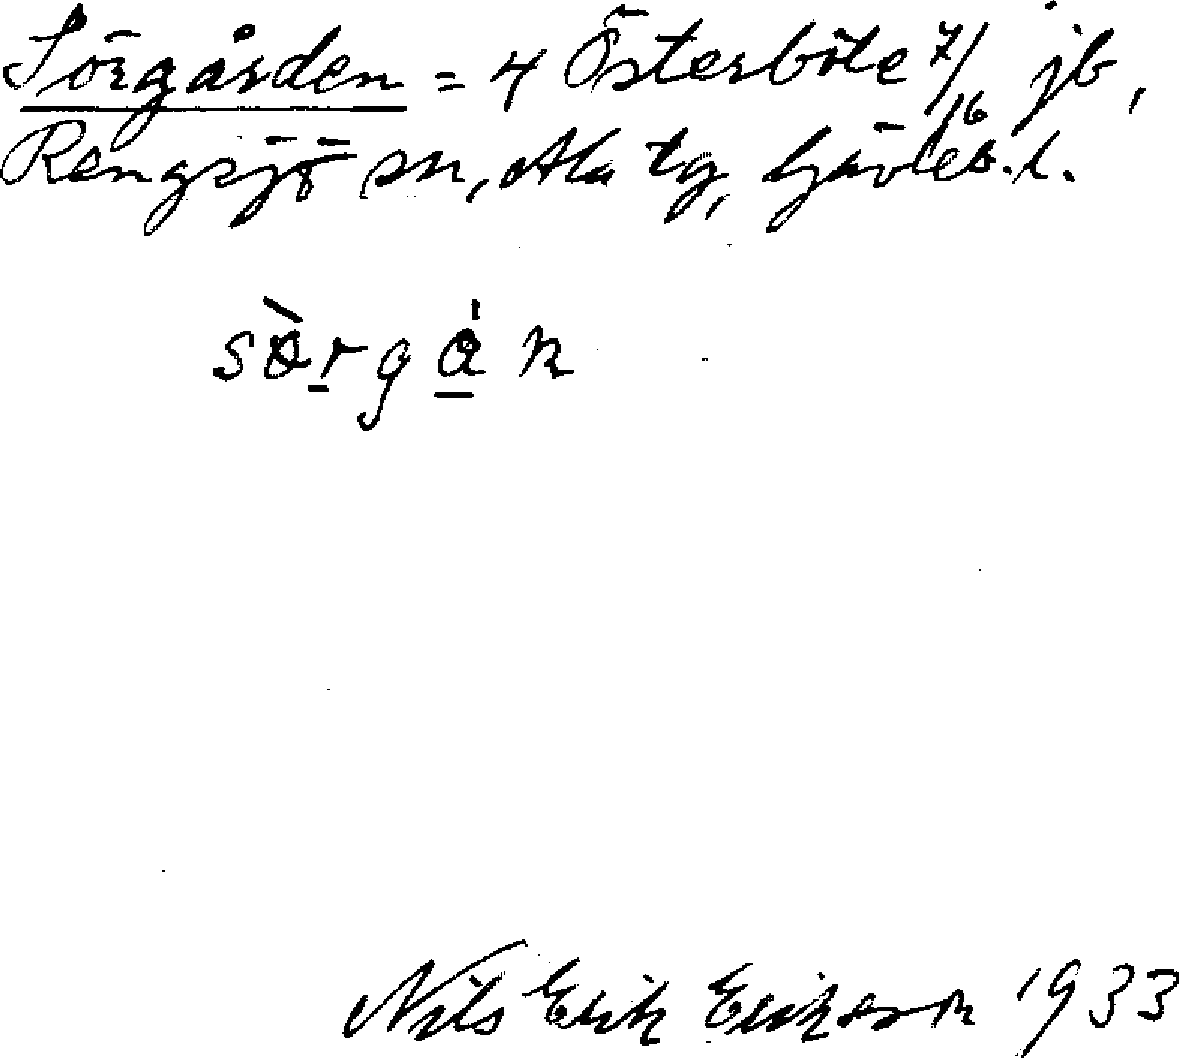 Sörgården = 4 Österböle 7/16 jb,
Rengsjö sn, Ala tg, Gävleb. l.
sὼrgån
Nils Erik Erikson 1933